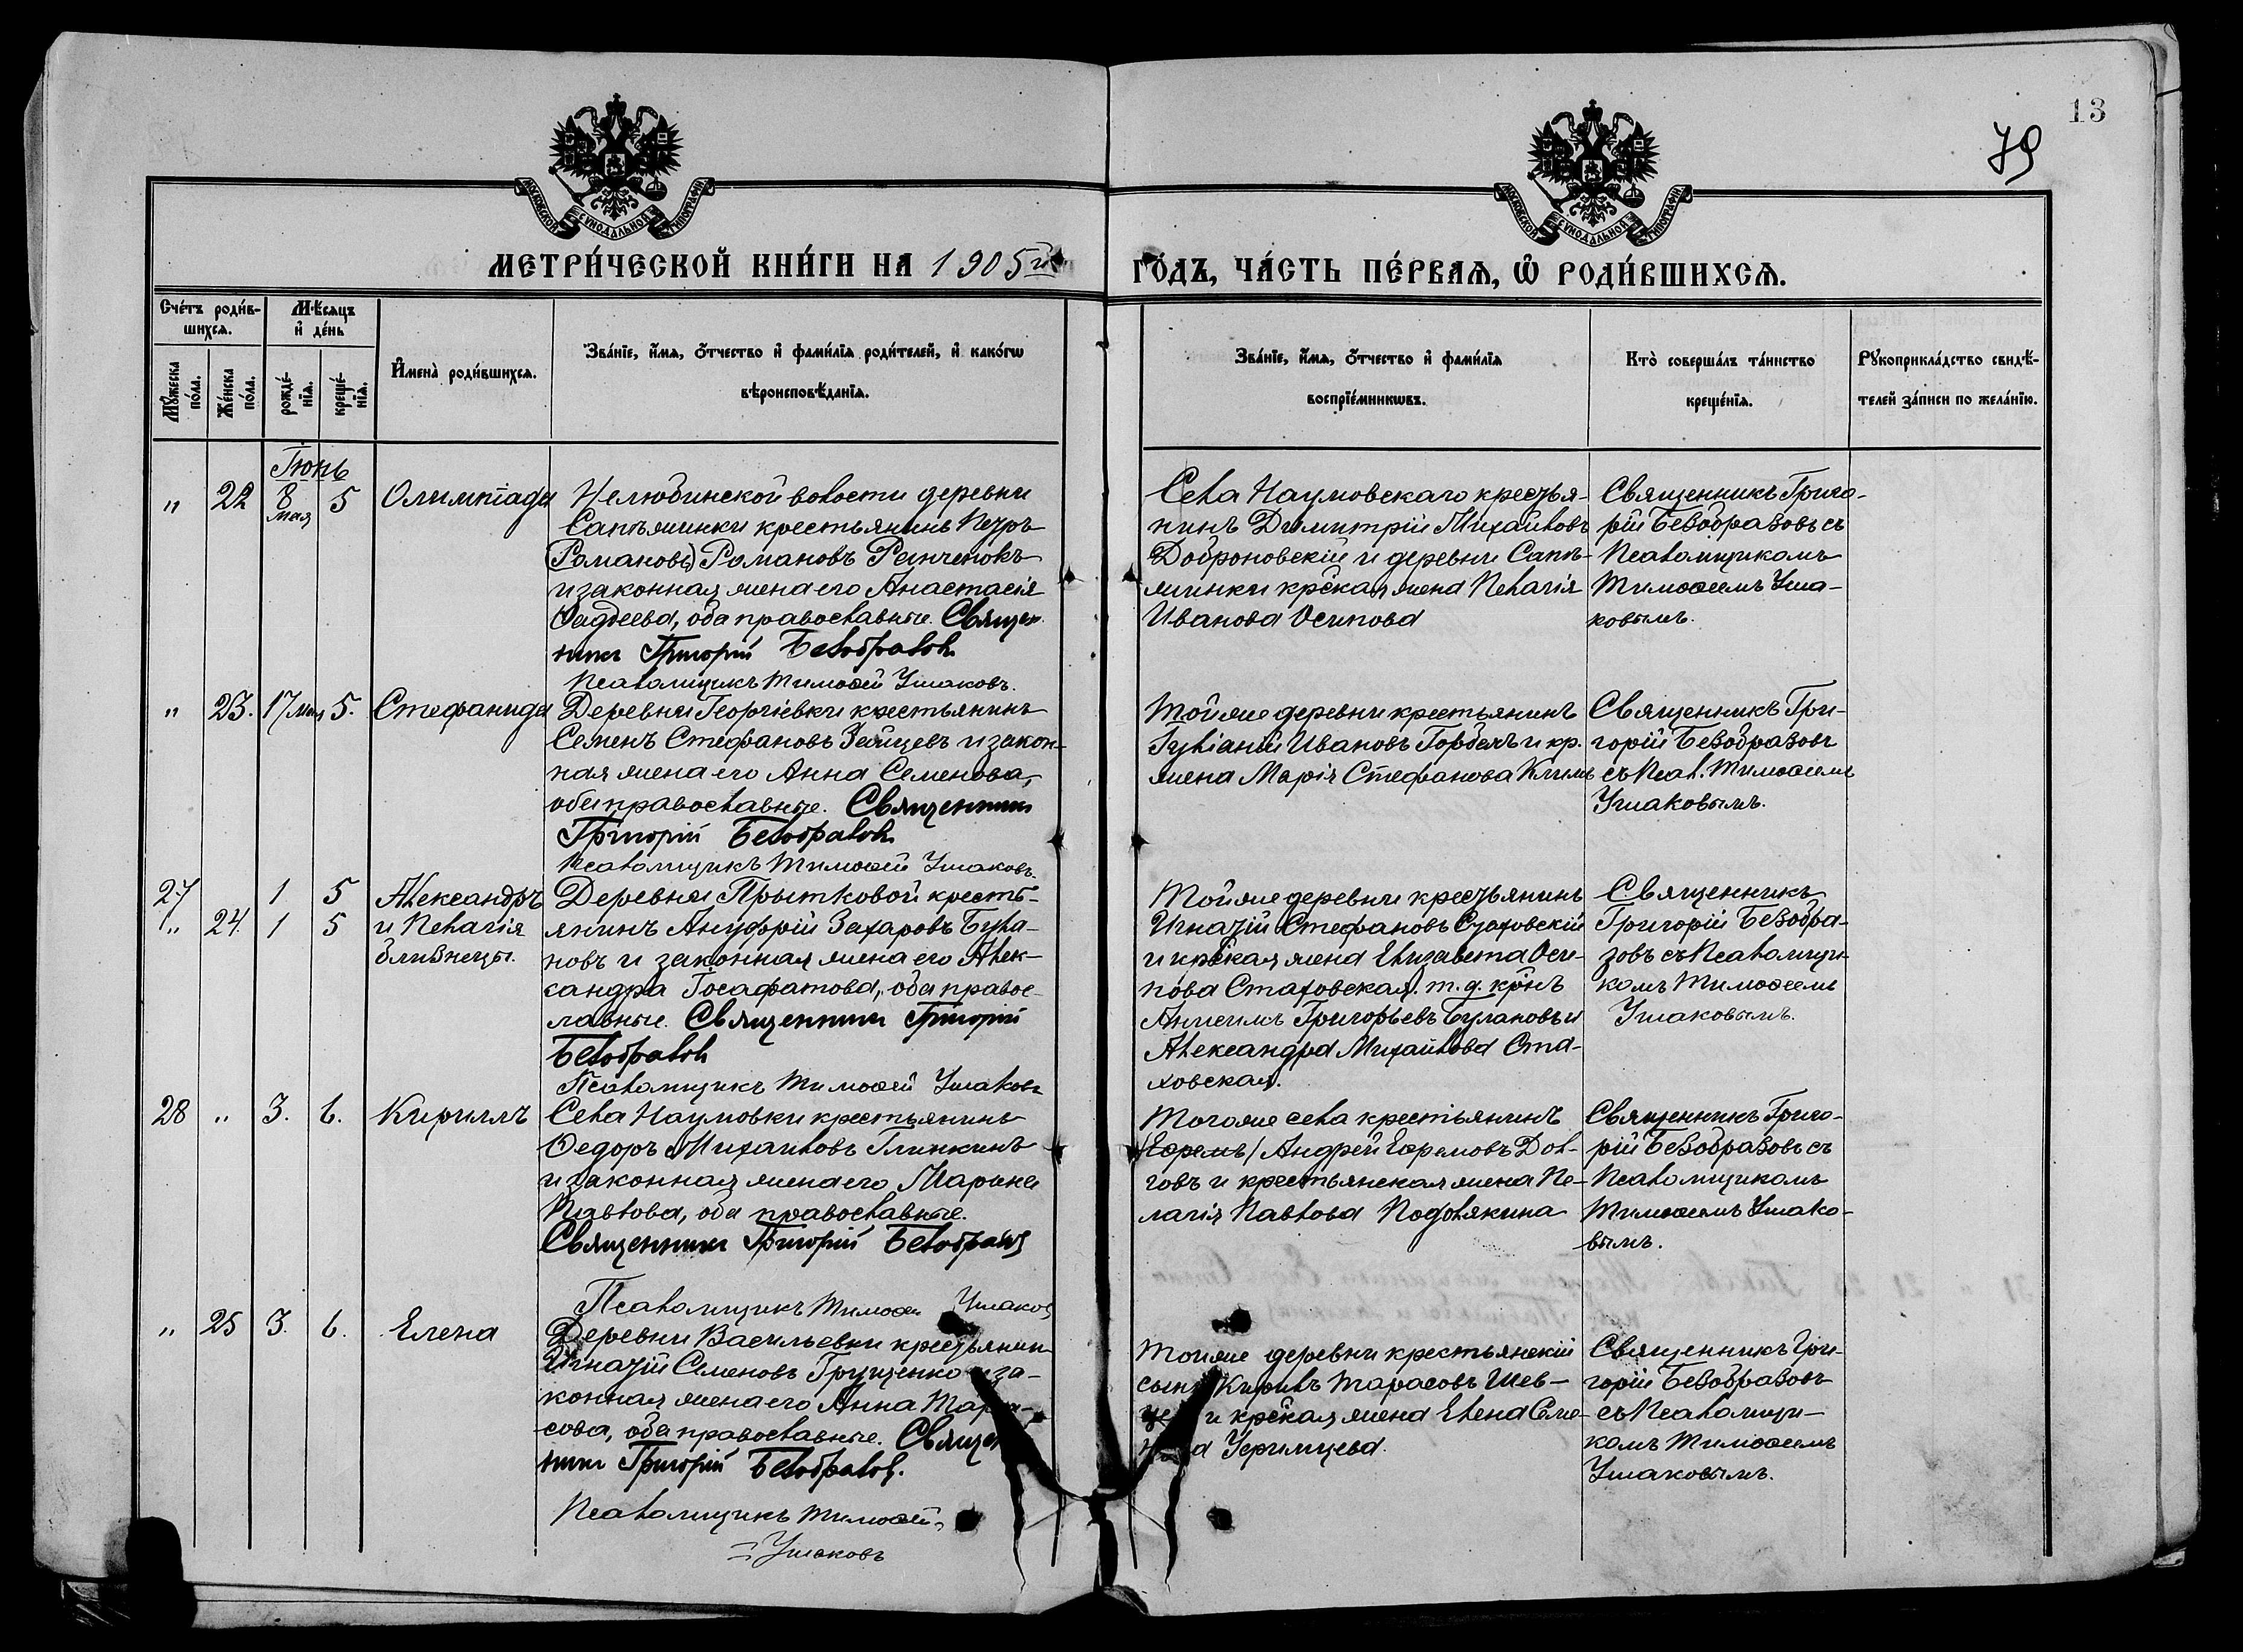 13
79
МОСКОВСКОЙ СѴНОДАЛЬНОЙ ТИПОГРАФІИ
МОСКОВСКОЙ СѴНОДАЛЬНОЙ ТИПОГРАФІИ
МЕТРИ́ЧЕСКОЙ КНИ́ГИ НА 1905й
ГО́ДЪ, ЧА́СТЬ ПЕ́РВАѦ, Ѽ РОДИ́ВШИХСѦ.
Сче́тъ роди́в-
шихсѧ.
Мѣ́сяцъ
и҆ де́нь
Мꙋ́жеска по́ла.
Же́нска по́ла.
рожде́-нїѧ.
креще́-нїѧ.
И҆мена̀ роди́вшихсѧ.
Зва́нїе, и҆́мѧ, ѻ҆́тчество и҆ фами́лїѧ роди́телей, и҆ како́гѡ
вѣроисповѣ́данїѧ.
Зва́нїе, и҆́мѧ, ѻ҆́тчество и҆ фами́лїѧ
воспрїе́мникѡвъ.
Кто̀ соверша́лъ та́инство
креще́нїѧ.
Рꙋкоприкла́дство свидѣ́-
телей за́писи по жела́нїю.
Іюнь
" 22 8 мая 5 Олимпіада
Нелюбинской волости деревни
Сапѣжинки крестьянинъ Петръ
(Романовъ) Романовъ Ранченокъ
и законная жена его Анастасія
Ѳадѣева, оба православные. Священ-
никъ Григорій Безобразовъ
Псаломщикъ Тимоѳей Ушаковъ.
Села Наумовскаго крестья-
нинъ Димитрій Михайловъ
Доброновскій и деревни Сапѣ-
жинки кр-ская жена Пелагія
Иванова Осипова
Священникъ Григо-
рій Безобразовъ съ
Псаломщикомъ
Тимоѳеемъ Уша-
ковымъ.
" 23. 17 мая 5. Стефанида
Деревни Георгіевки крестьянинъ
Семенъ Стефановъ Зайцевъ и закон-
ная жена его Анна Семенова,
оба православные. Священникъ
Григорій Безобразовъ
Псаломщикъ Тимоѳей Ушаковъ.
Той же деревни крестьянинъ
Іуліаній Ивановъ Горбачъ и кр.
жена Марія Стефанова Климъ
Священникъ Гри-
горій Безобразовъ
съ Псал. Тимоѳеемъ
Ушаковымъ.
27 1 5 Александръ
" 24. 1 5 и Пелагія
близнецы.
Деревни Прытковой кресть-
янинъ Ануфрій Захаровъ Була-
новъ и законная жена его Алек-
сандра Іосафатова, оба правос-
лавные. Священникъ Григорій
Безобразовъ
Псаломщикъ Тимоѳей Ушаковъ
Той же деревни крестьянинъ
Игнатій Стефановъ Стаховскій
и кр-ская жена Елизавета Оси-
пова Стаховская. т. д. кр-нъ
Анисимъ Григорьевъ Булановъ и
Александра Михайлова Ста-
ховская.
Священникъ
Григорій Безобра-
зовъ съ Псаломщи-
комъ Тимоѳеемъ
Ушаковымъ.
28 " 3. 6. Кириллъ
Села Наумовки крестьянинъ
Ѳедоръ Михайловъ Глинкинъ
и законная жена его Марина
Павлова, оба православные.
Священникъ Григорій Безобразовъ
Псаломщикъ Тимоѳей Ушаковъ
Того же села крестьянинъ
(Ефремъ) Андрей Ефремовъ Дол-
говъ и крестьянская жена Пе-
лагія Павлова Подвякина
Священникъ Григо-
рій Безобразовъ съ
Псаломщикомъ
Тимоѳеемъ Ушако-
вымъ.
" 25 3. 6. Елена
Деревни Васильевки крестьянинъ
Игнатій Семеновъ Грущенко и за-
конная жена его Анна Тара-
сова, оба православные. Священ-
никъ Григорій Безобразовъ.
Псаломщикъ Тимоѳей
Ушаковъ
Той же деревни крестьянскій
сынъ Кирилъ Тарасовъ Шев-
и кр-ская жена Елена Семе-
нова
Священникъ Гри-
горій Безобразовъ
съ Псаломщи-
комъ Тимоѳеемъ
Ушаковымъ.